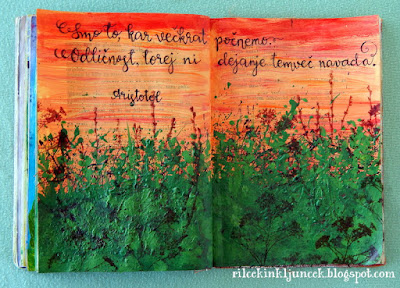 Smo to, kar večkrat počnemo.
Odličnost, torej ni dejanje temveč navada.
Aristotel
rilcekinkljuncek.blogspot.com